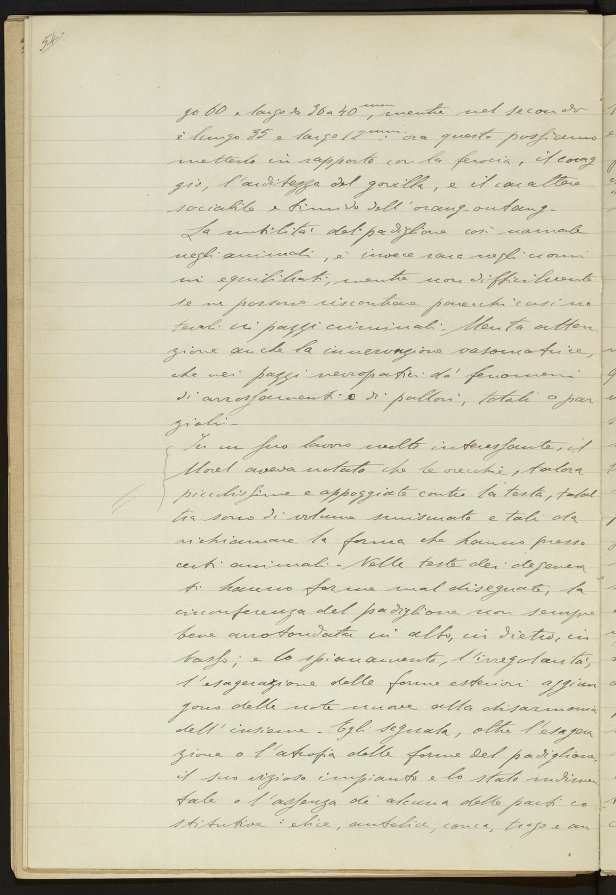 54
go 60 e largo da 36 a 40 mm, mentre nel secondo
è lungo 35 e largo 12 mm: ora questo possiamo
metterlo in rapporto con la ferocia, il corag
gio, l'arditezza del gorilla, e il carattere
sociabile e timido dell'orang outang.
La mobilità del padiglione così normale
negli animali, è invece rara negli uomi
ni equilibrati, mentre non difficilmente
se ne possono riscontrare parecchi casi no
tevoli in pazzi criminali. Merita atten
zione anche la innervazione vasomotrice,
che nei pazzi nevropatici dà fenomeni
di arrossamenti e di pallori, totali o par
ziali.
In un suo lavoro molto interessante, il
Morel aveva notato che le orecchie, talora
piccolissime e appoggiate contro la testa, talal
tra sono di volume smisurato e tali da
richiamare la forma che hanno presso
certi animali. Nelle teste dei degenera
ti hanno forme mal disegnate, la
circonferenza del padiglione non sempre
bene arrotondata in alto, in dietro, in
basso; e lo spianamento, l'irregolarità,
l'esagerazione delle forme esteriori aggiun
gono delle note nuove alla disarmonia
dell'insieme. Egli segnala, oltre l'esagera
zione o l'atrofia delle forme del padiglione,
il suo vizioso impianto e lo stato rudimen
tale o l'assenza di alcuna delle parti co
stitutive: elice, antelice, conca, trago e an